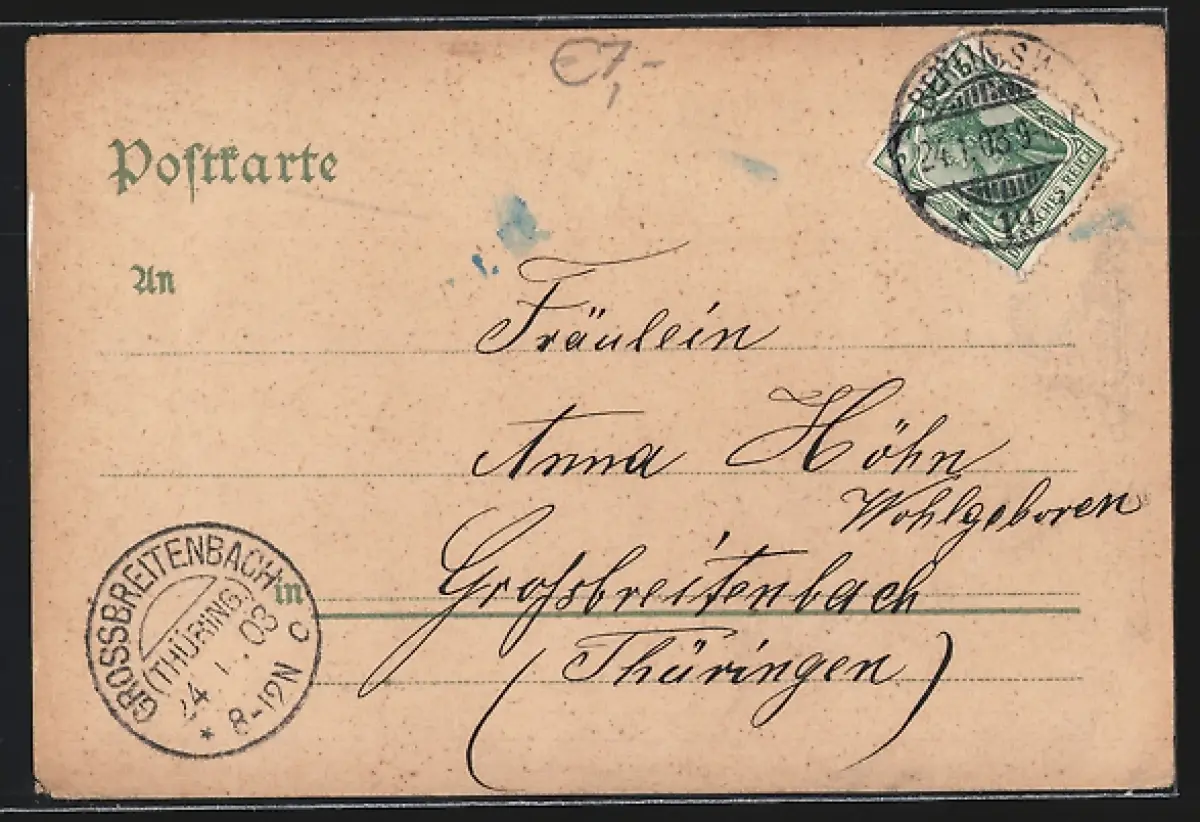 €7,-
Postkarte
BERLIN S.W.
24.1.03.9-
DEUTSCHES REICH
An
Fräulein
Anna Höhn
Wohlgeboren
in Grossbreitenbach
(Thüringen)
GROSSBREITENBACH
(THÜRING)
24 1.03
8-12N
* C